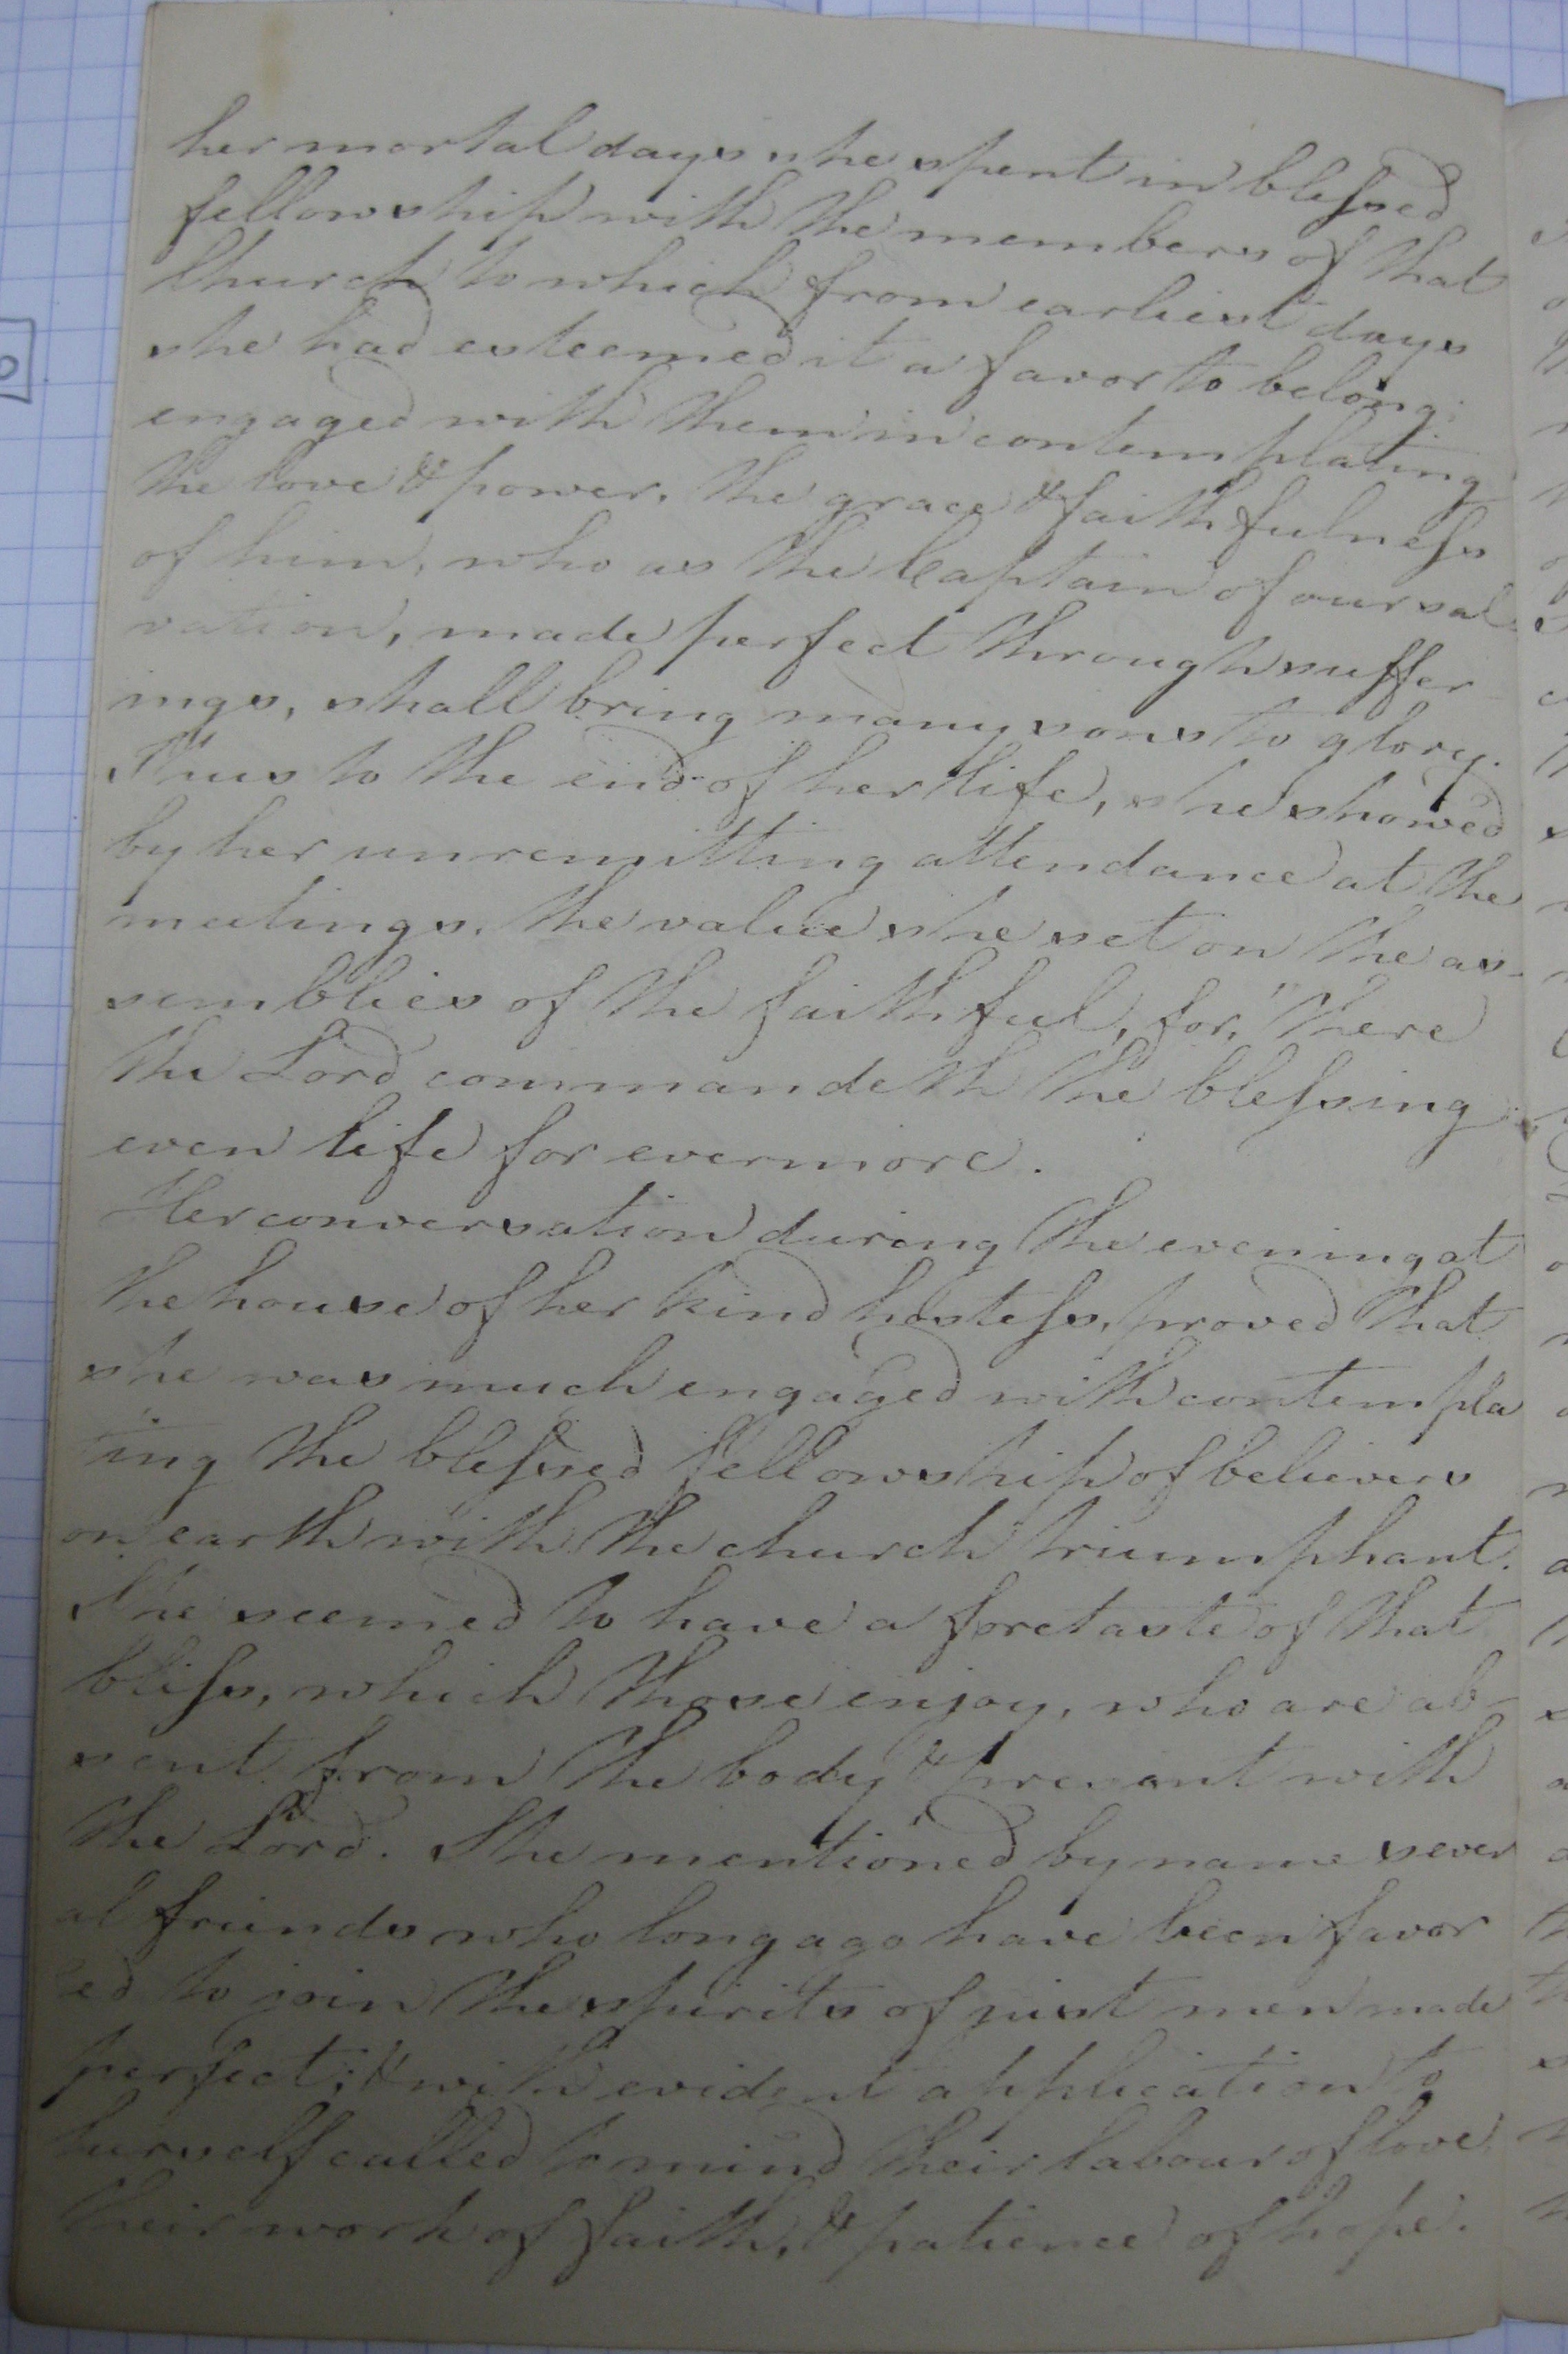 her mortal days she spent in blessed
fellowship with the members of that
Church to which from earliest days
she had esteemed it a favor to belong;
engaged with them in contemplating
the love & power, the grace & faithfulness
of him, who as the Captain of our sal-
vation, made perfect through suffer-
ings, shall bring many sons to glory.
Thus to the end of her life, she showed
by her unremitting attendance at the
meetings, the value she set on the as-
semblies of the faithful, for, "there
the Lord commandeth the blessing
even life for evermore.
Her conversation during the evening at
the house of her kind hostess, proved that
she was much engaged with contempla
ting the blessed fellowship of believers
on earth with the church triumphant.
She seemed to have a foretaste of that
bliss, which those enjoy, who are ab-
sent from the body & present with
the Lord. She mentioned by name sever
al friends who long ago have been favor
ed to join the spirits of just men made
perfect; & with evident application to
herself called to mind their labour of love,
their work of faith, & patience of hope.